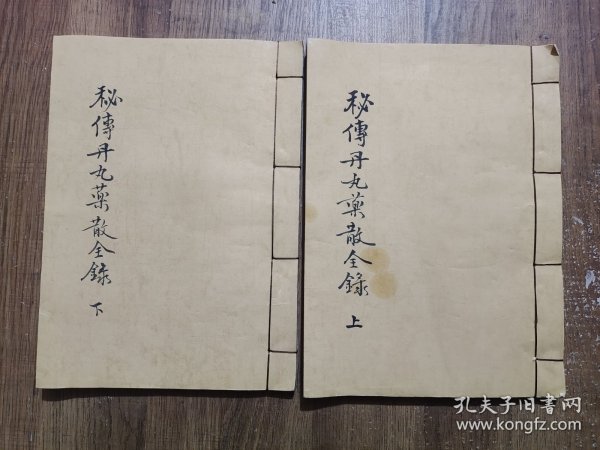 秘傳丹丸藥散全錄
上
秘傳丹丸藥散全錄
下
孔夫子旧書网
www.kongfz.com